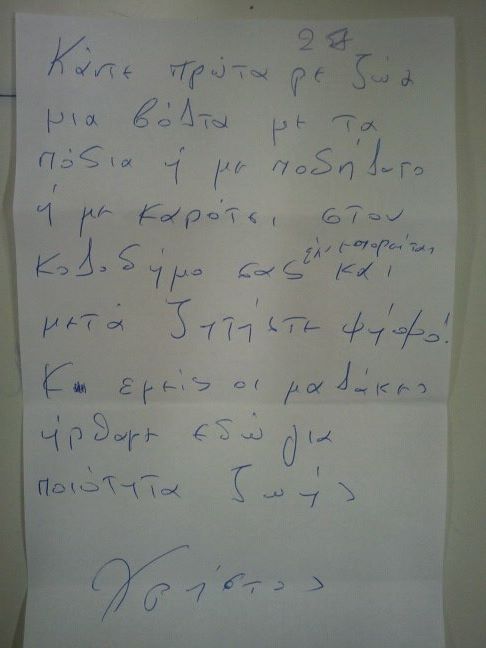 Κάντε πρώτα ρε ζώα
μια βόλτα με τα
πόδια ή με ποδήλατο
ή με καρότσι στον
κωλοδήμο σας εάν μπορείται και
μετά ζητήστε ψήφο!
Κι εμείς οι μαλάκες
ήρθαμε εδώ για
ποιότητα ζωής
Χρήστος